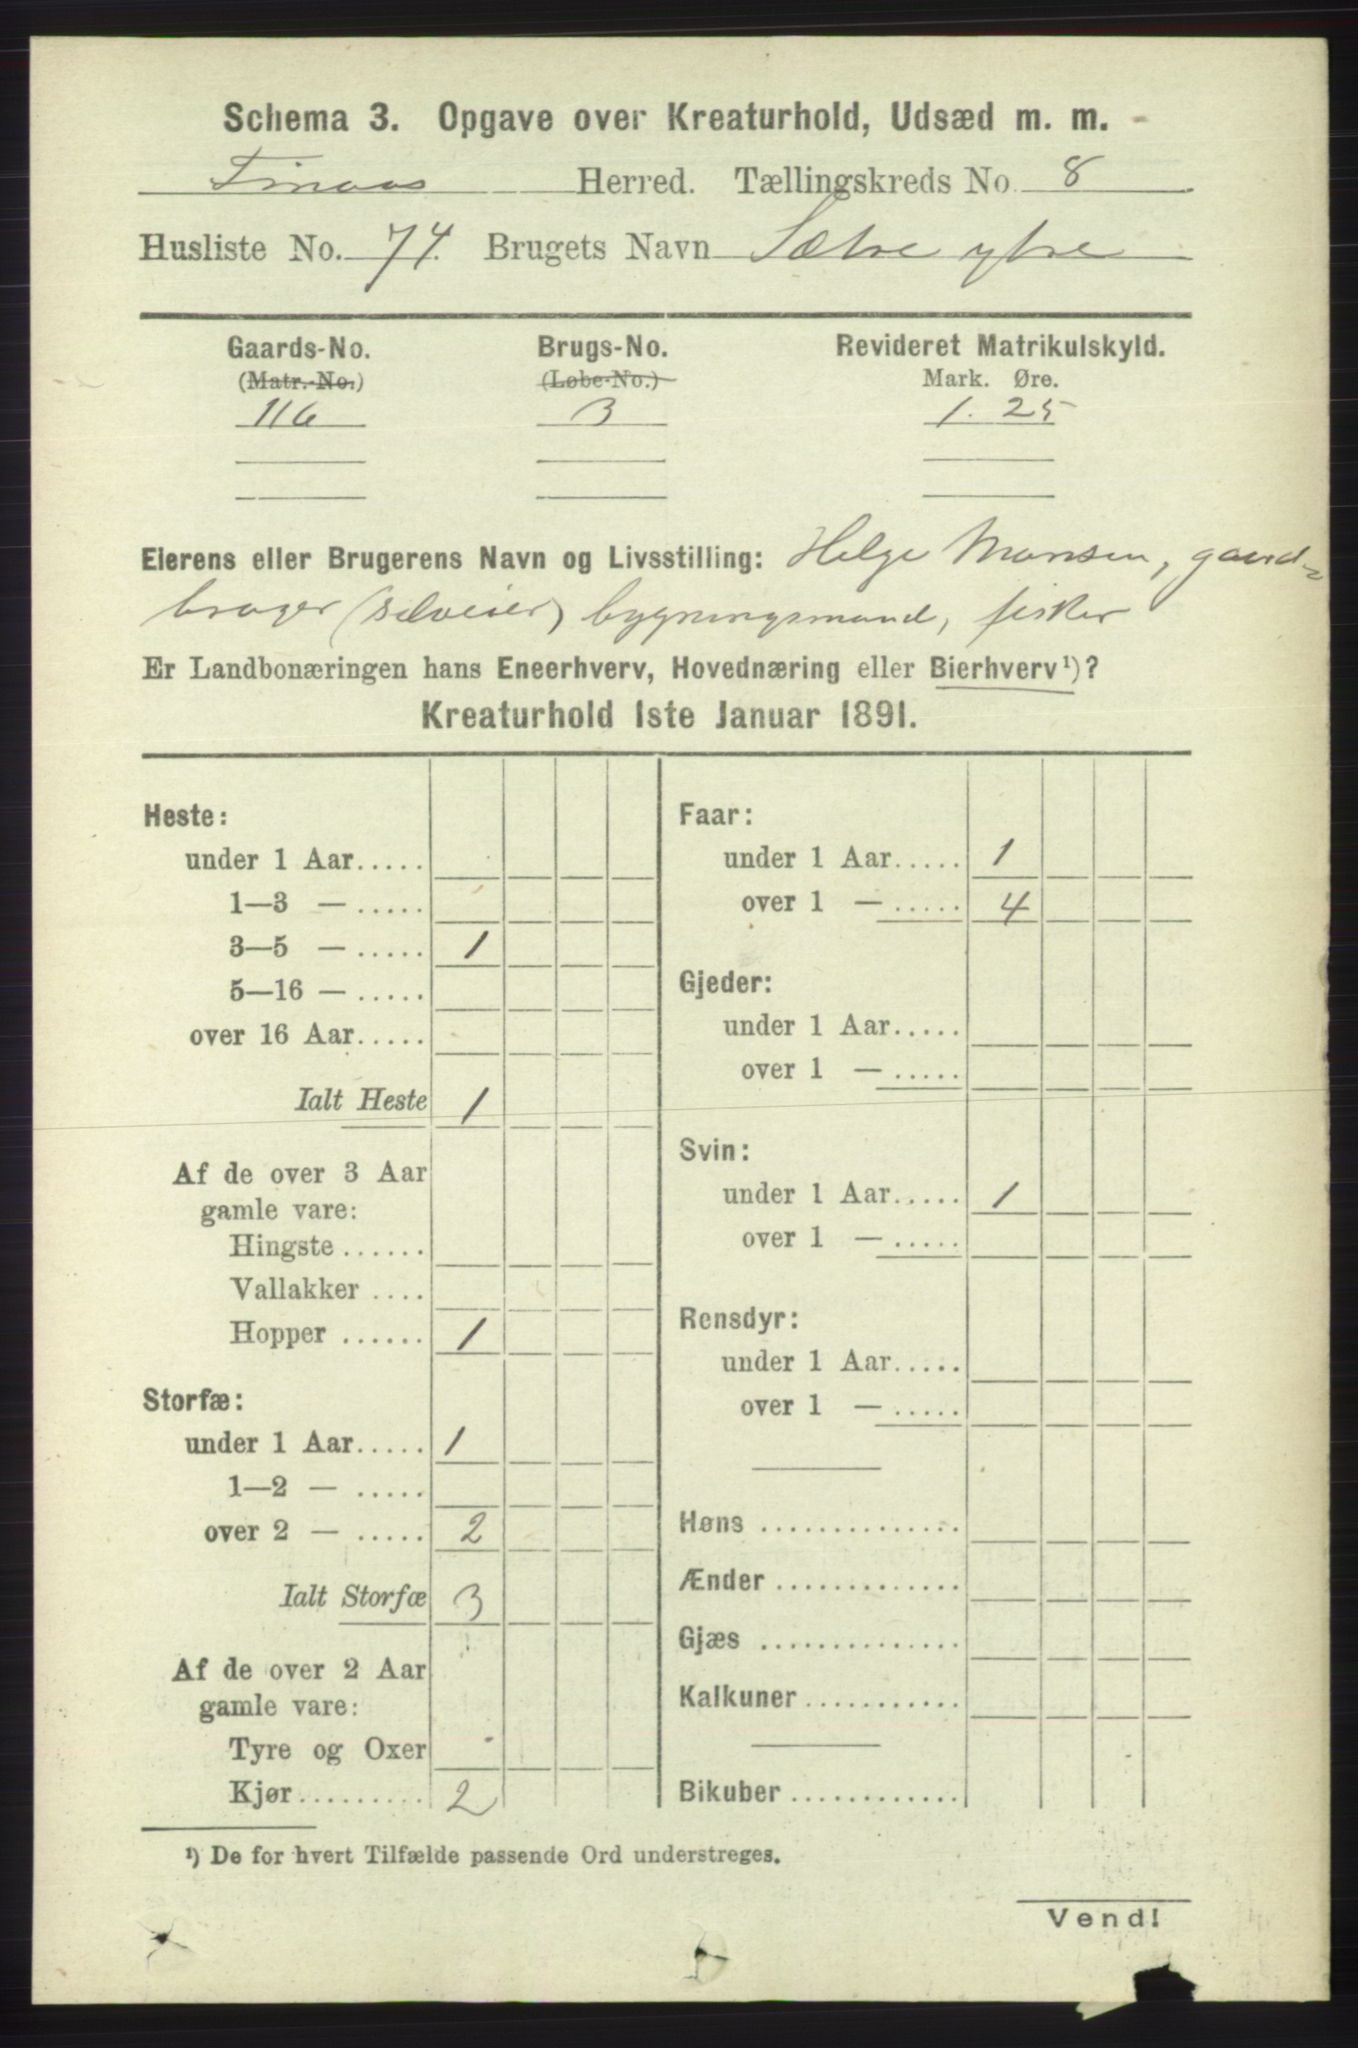 Schema 3. Opgave over Kreaturhold, Udsæd m. m.
Finaas Herred. Tællingskreds No. 8
Husliste No. 74. Brugets Navn Sætre ytre
Gaards-No. Brugs-No. Revideret Matrikulskyld.
(Matr.-No.) (Løbe-No.) Mark. Øre.
116 3 1.25
Eierens eller Brugerens Navn og Livsstilling: Helge Monsen, gaard-
bruger (selveier) bygningsmand, fisker
Er Landbonæringen hans Eneerhverv, Hovednæring eller Bierhverv¹)?
Kreaturhold 1ste Januar 1891.
Heste:
under 1 Aar.....
1—3 — .....
3—5 — ..... 1
5—16 — .....
over 16 Aar.....
Ialt Heste 1
Af de over 3 Aar
gamle vare:
Hingste ......
Vallakker ....
Hopper ...... 1
Storfæ:
under 1 Aar..... 1
1—2 — .....
over 2 — ..... 2
Ialt Storfæ 3
Af de over 2 Aar
gamle vare:
Tyre og Oxer
Kjør......... 2
Faar:
under 1 Aar..... 1
over 1 — ..... 4
Gjeder:
under 1 Aar.....
over 1 — .....
Svin:
under 1 Aar..... 1
over 1 — .....
Rensdyr:
under 1 Aar.....
over 1 — .....
Høns ..............
Ænder .............
Gjæs ..............
Kalkuner ...........
Bikuber .............
¹) De for hvert Tilfælde passende Ord understreges.
Vend!